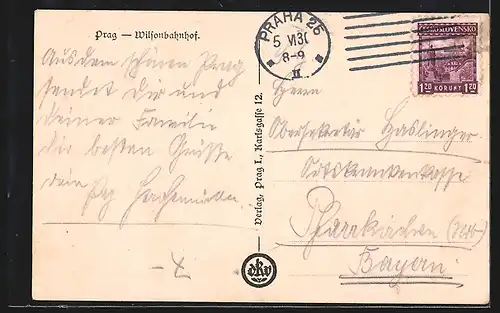 Prag — Wilsonbahnhof.
PRAHA 25
5 VI 30
8-9
II
ČESKOSLOVENSKO
1.20 KORUNY 1.20
Aus dem schönen Prag
sendet dir und
deiner Familie
die besten Grüsse
dein
Verlag, Prag I., Karlsgasse 12.
Herrn
Obersekretär Haslinger
Ortskrankenkasse
Pfarrkirchen
Bayern